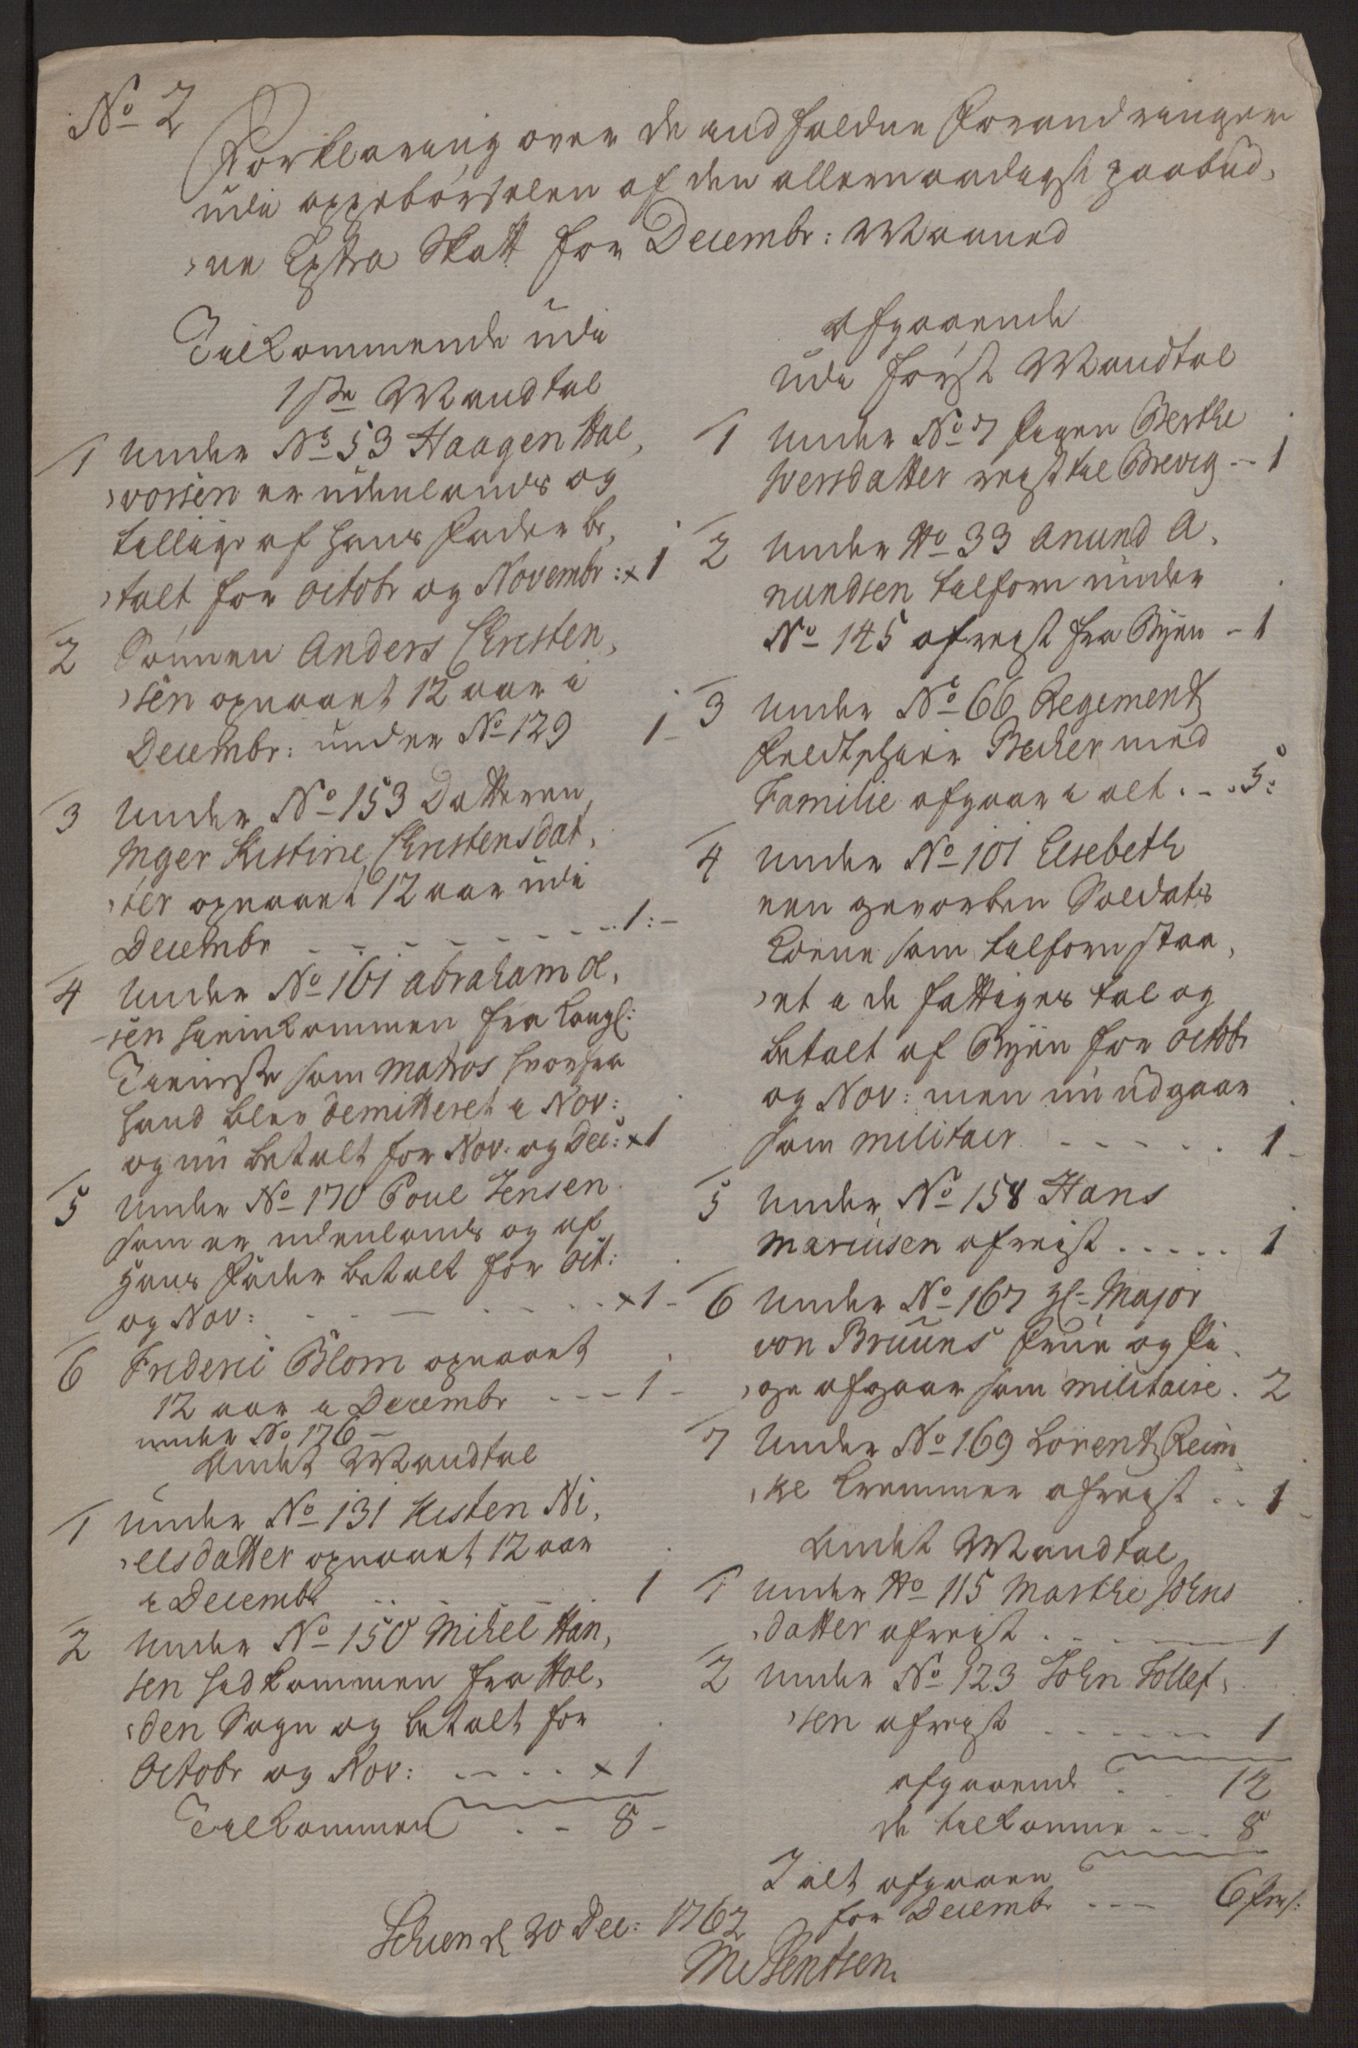 No 2
Forklaring over de indfaldne Forandringer
udi oppebørselen af den allernaadigst paabud-
ne Extra Skatt for Decembr: Maaned
Tilkommende udi
1ste Mandtal
1 Under No 53 Haagen Hal-
vorsen er udenlands og
tillige af hans Fader be-
talt for Octobr og Novembr: x 1
2 Sønnen Anders Christen-
sen opnaaet 12 aar i
Decembr: under No 129 1 -
3 Under No 153 Datteren
Inger Kistine Christensdat-
ter opnaaet 12 aar udi
Decembr 1: -
4 Under No 161 Abraham Ol-
sen hiemkommen fra Kongl:
Tieniste som Matros hvorfra
hand blev demitteret i Nov:
og nu betalt for Nov. og Dec: x 1
5 Under No 170 Poul Jensen
som er udenlands og af
Hans Fader betalt for Oct:
og Nov: x 1 -
6 Frideric Blom opnaaet
12 aar i Decembr 1 -
under No 176 -
Andet Mandtal
1 under No 131 Kisten Ni-
elsdatter opnaaet 12 aar
i Decembr 1
2 Under No 150 Mikel Han-
sen hidkommen fra Hol-
den Sogn og betalt for
Octobr og Nov: x 1
Tilkommen 8 -
Afgaaende
udi først Mandtal
1 Under No 7 Pigen Berthe
Iversdatter reist til Brevig - 1
2 Under No 33 Anund A-
nundsen tilforn under
No 145 afreist fra Byen - 1
3 Under No 66 Regements
Feldtskiær Becker med
Familie afgaar i alt 3:
4 Under No 101 Elsebeth
een gevorben Soldats
Kone som tilforn staa-
et i de fattiges tal og
betalt af Byen for Octobr
og Nov: men nu udgaar
som militair 1 -
5 Under No 158 Hans
Mariusen afreist 1
6 Under No 167 Hr Major
von Bruuns Frue og Pi-
ge afgaar som militaire. 2
7 Under No 169 Lorentz Reim-
ke Kremmer afreist 1 -
Andet Mandtal
1 Under No 115 Marthe Johns
datter afreist 1
2 Under No 123 John Tollef-
sen afreist 1
afgaaende 12
de tilkomne 8
I alt afgaaen
for Decembr 6 Pers:
Schien d 20 Dec: 1762